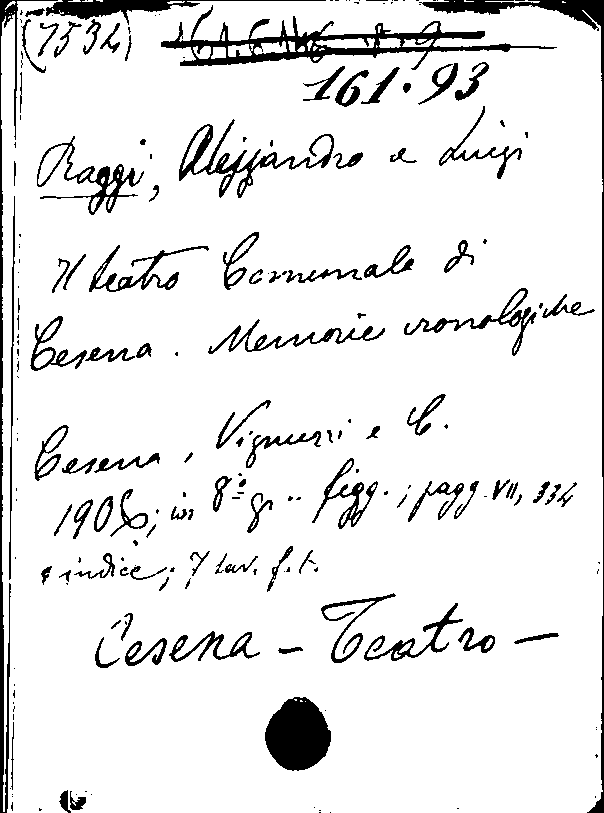 (7532)
161.93
Raggi, Alessandro e Luigi
Il teatro Comunale di
Cesena. Memorie cronologiche
Cesena, Vignuzzi e C.
in 8° gr. figg.; pagg. VII, 332
e indice; 7 tav. f.t.
Cesena - Teatro -